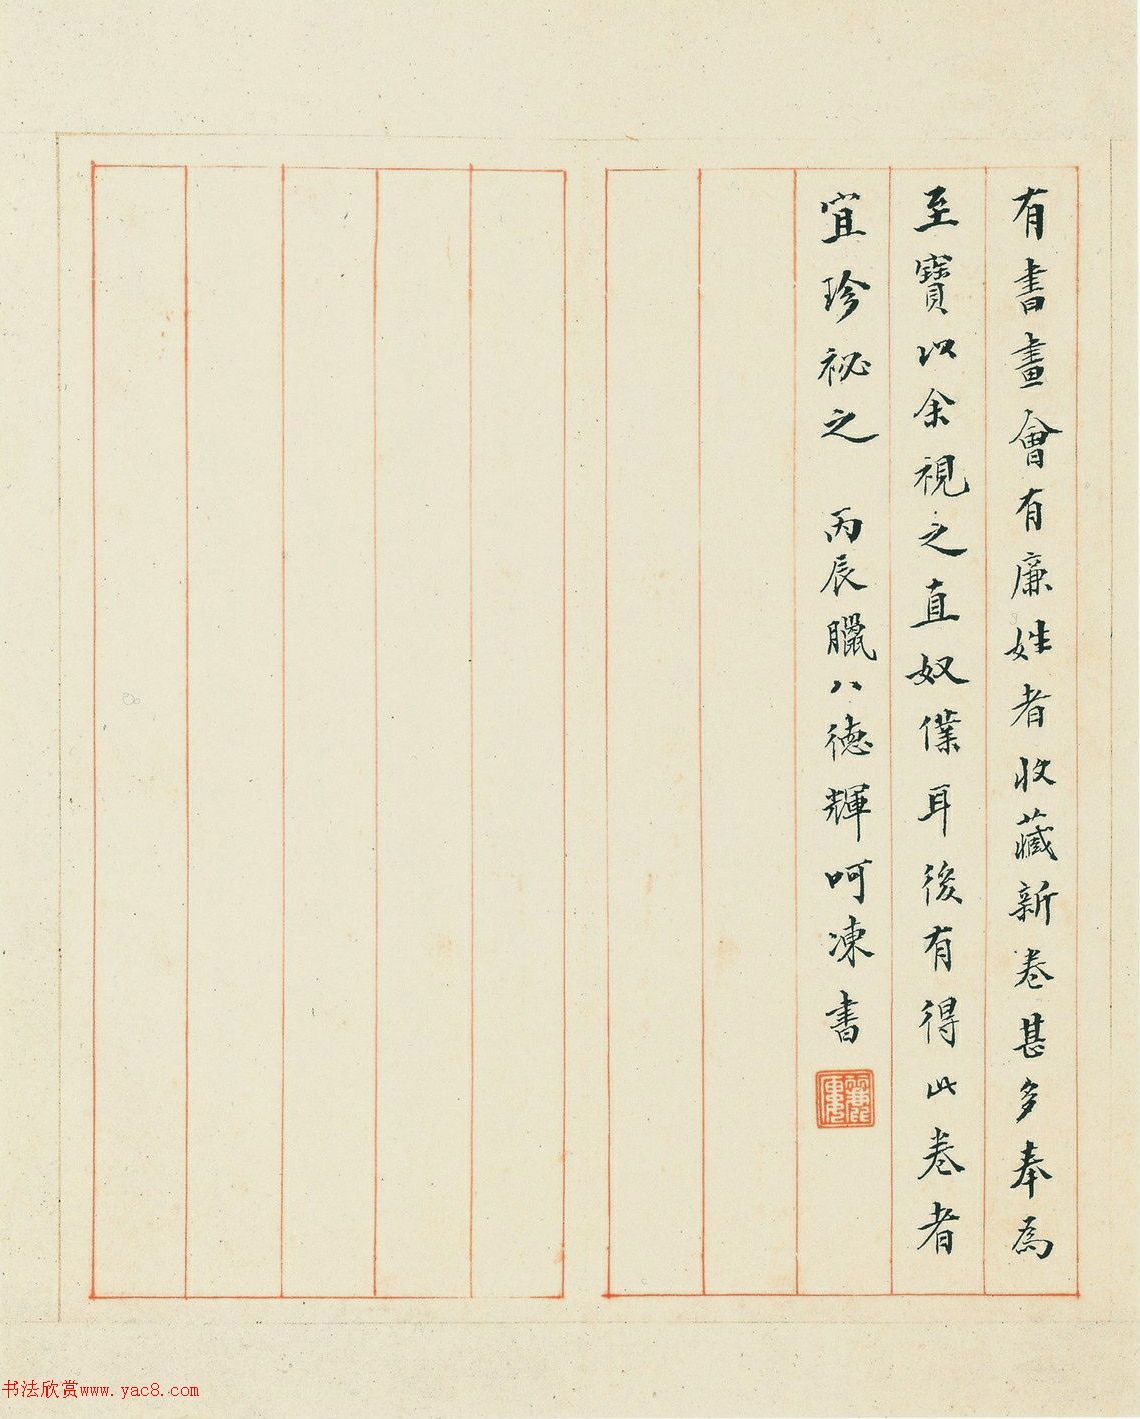 有書畫會有廉姓者收藏新卷甚多奉為
至寶以余視之直奴僕耳後有得此卷者
宜珍祕之 丙辰臘八德輝呵凍書
书法欣赏www.yac8.com